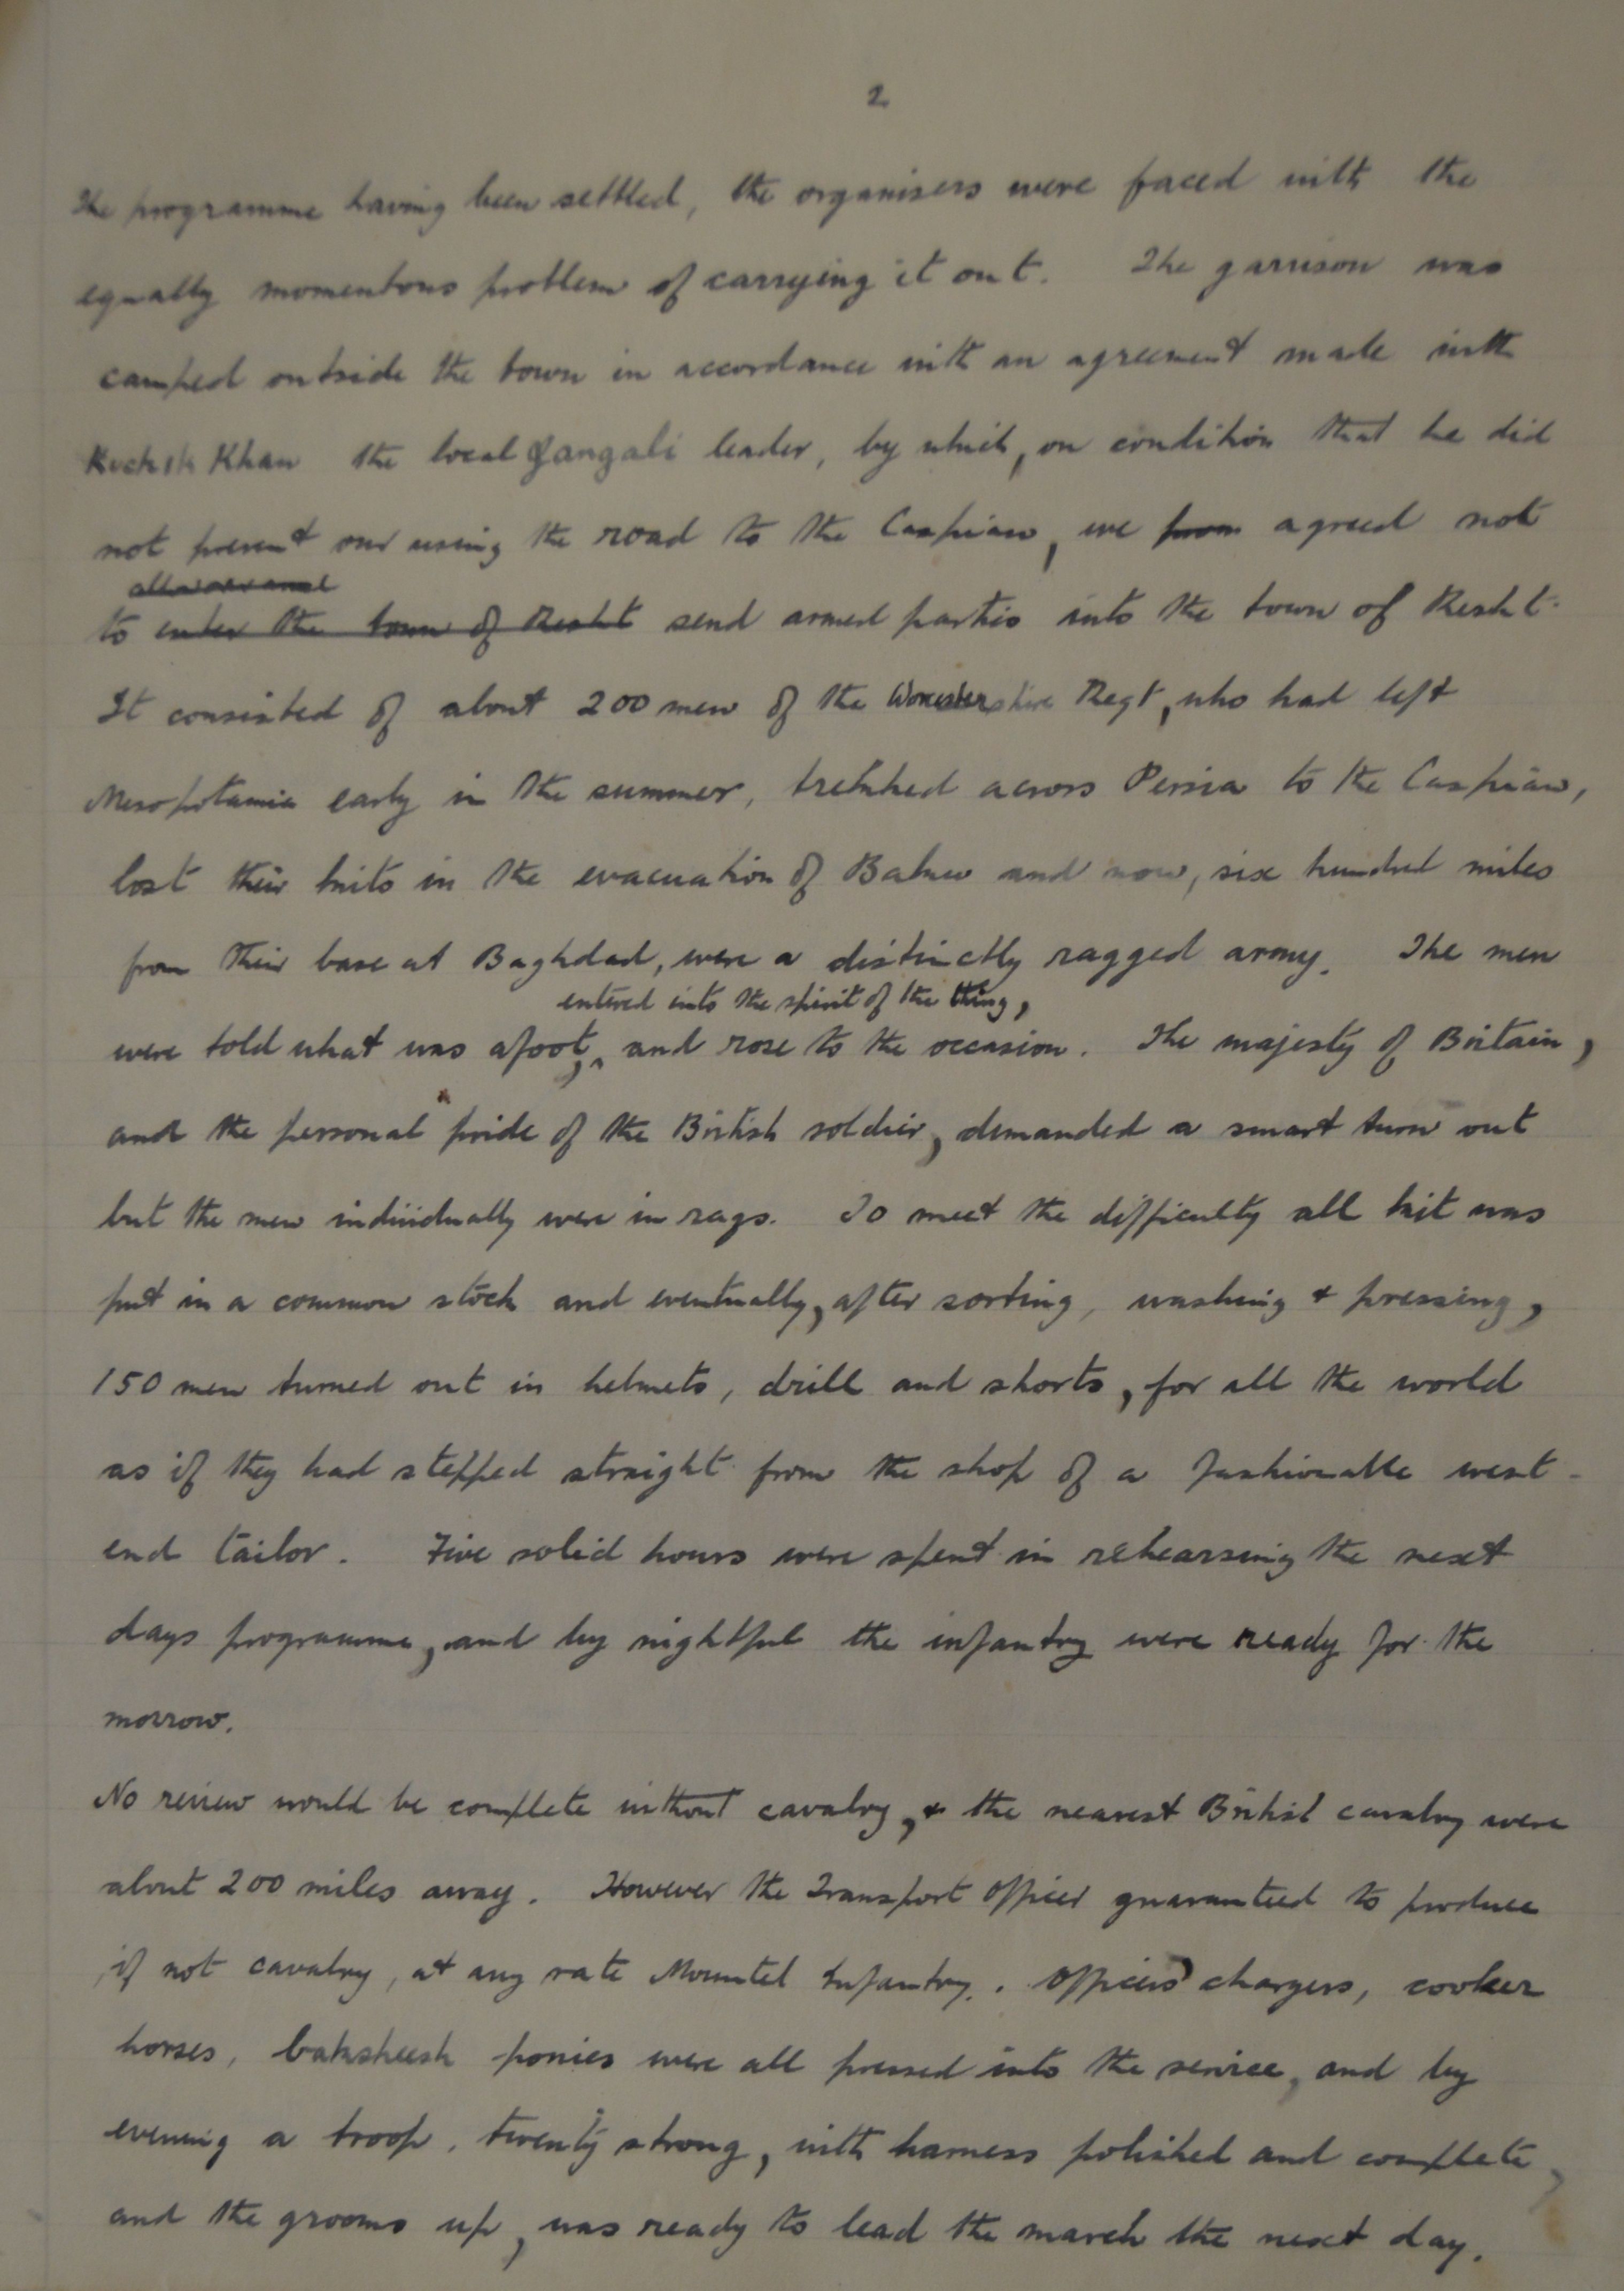 2
The programme having been settled, the organisers were faced with the
equally momentous problem of carrying it out. The garrison was
camped outside the town in accordance with an agreement made with
Kuchik Khan the local Jangali leader, by which, on condition that he did
not prevent our using the road to the Caspian, we from agreed not
allow our armed
to enter the town of Resht send armed parties into the town of Resht.
It consisted of about 200 men of the Worcestershire Regt, who had left
Mesopotamia early in the summer, trekked across Persia to the Caspian,
lost their kits in the evacuation of Baku and now, six hundred miles
from their base at Baghdad, were a distinctly ragged army. The men
entered into the spirit of the thing,
were told what was afoot, and rose to the occasion. The majesty of Britain,
and the personal pride of the British soldier, demanded a smart turn out
but the men individually were in rags. To meet the difficulty all kit was
put in a common stock and eventually, after sorting, washing & pressing,
150 men turned out in helmets, drill and shorts, for all the world
as if they had stepped straight from the shop of a fashionable west-
end tailor. Five solid hours were spent in rehearsing the next
days programme, and by nightfall the infantry were ready for the
morrow.
No review would be complete without cavalry, & the nearest British cavalry were
about 200 miles away. However the Transport Officer guaranteed to produce
if not cavalry, at any rate Mounted Infantry. Officers' chargers, cooker
horses, baksheesh ponies were all pressed into the service, and by
evening a troop, twenty strong, with harness polished and complete,
and the grooms up, was ready to lead the march the next day.